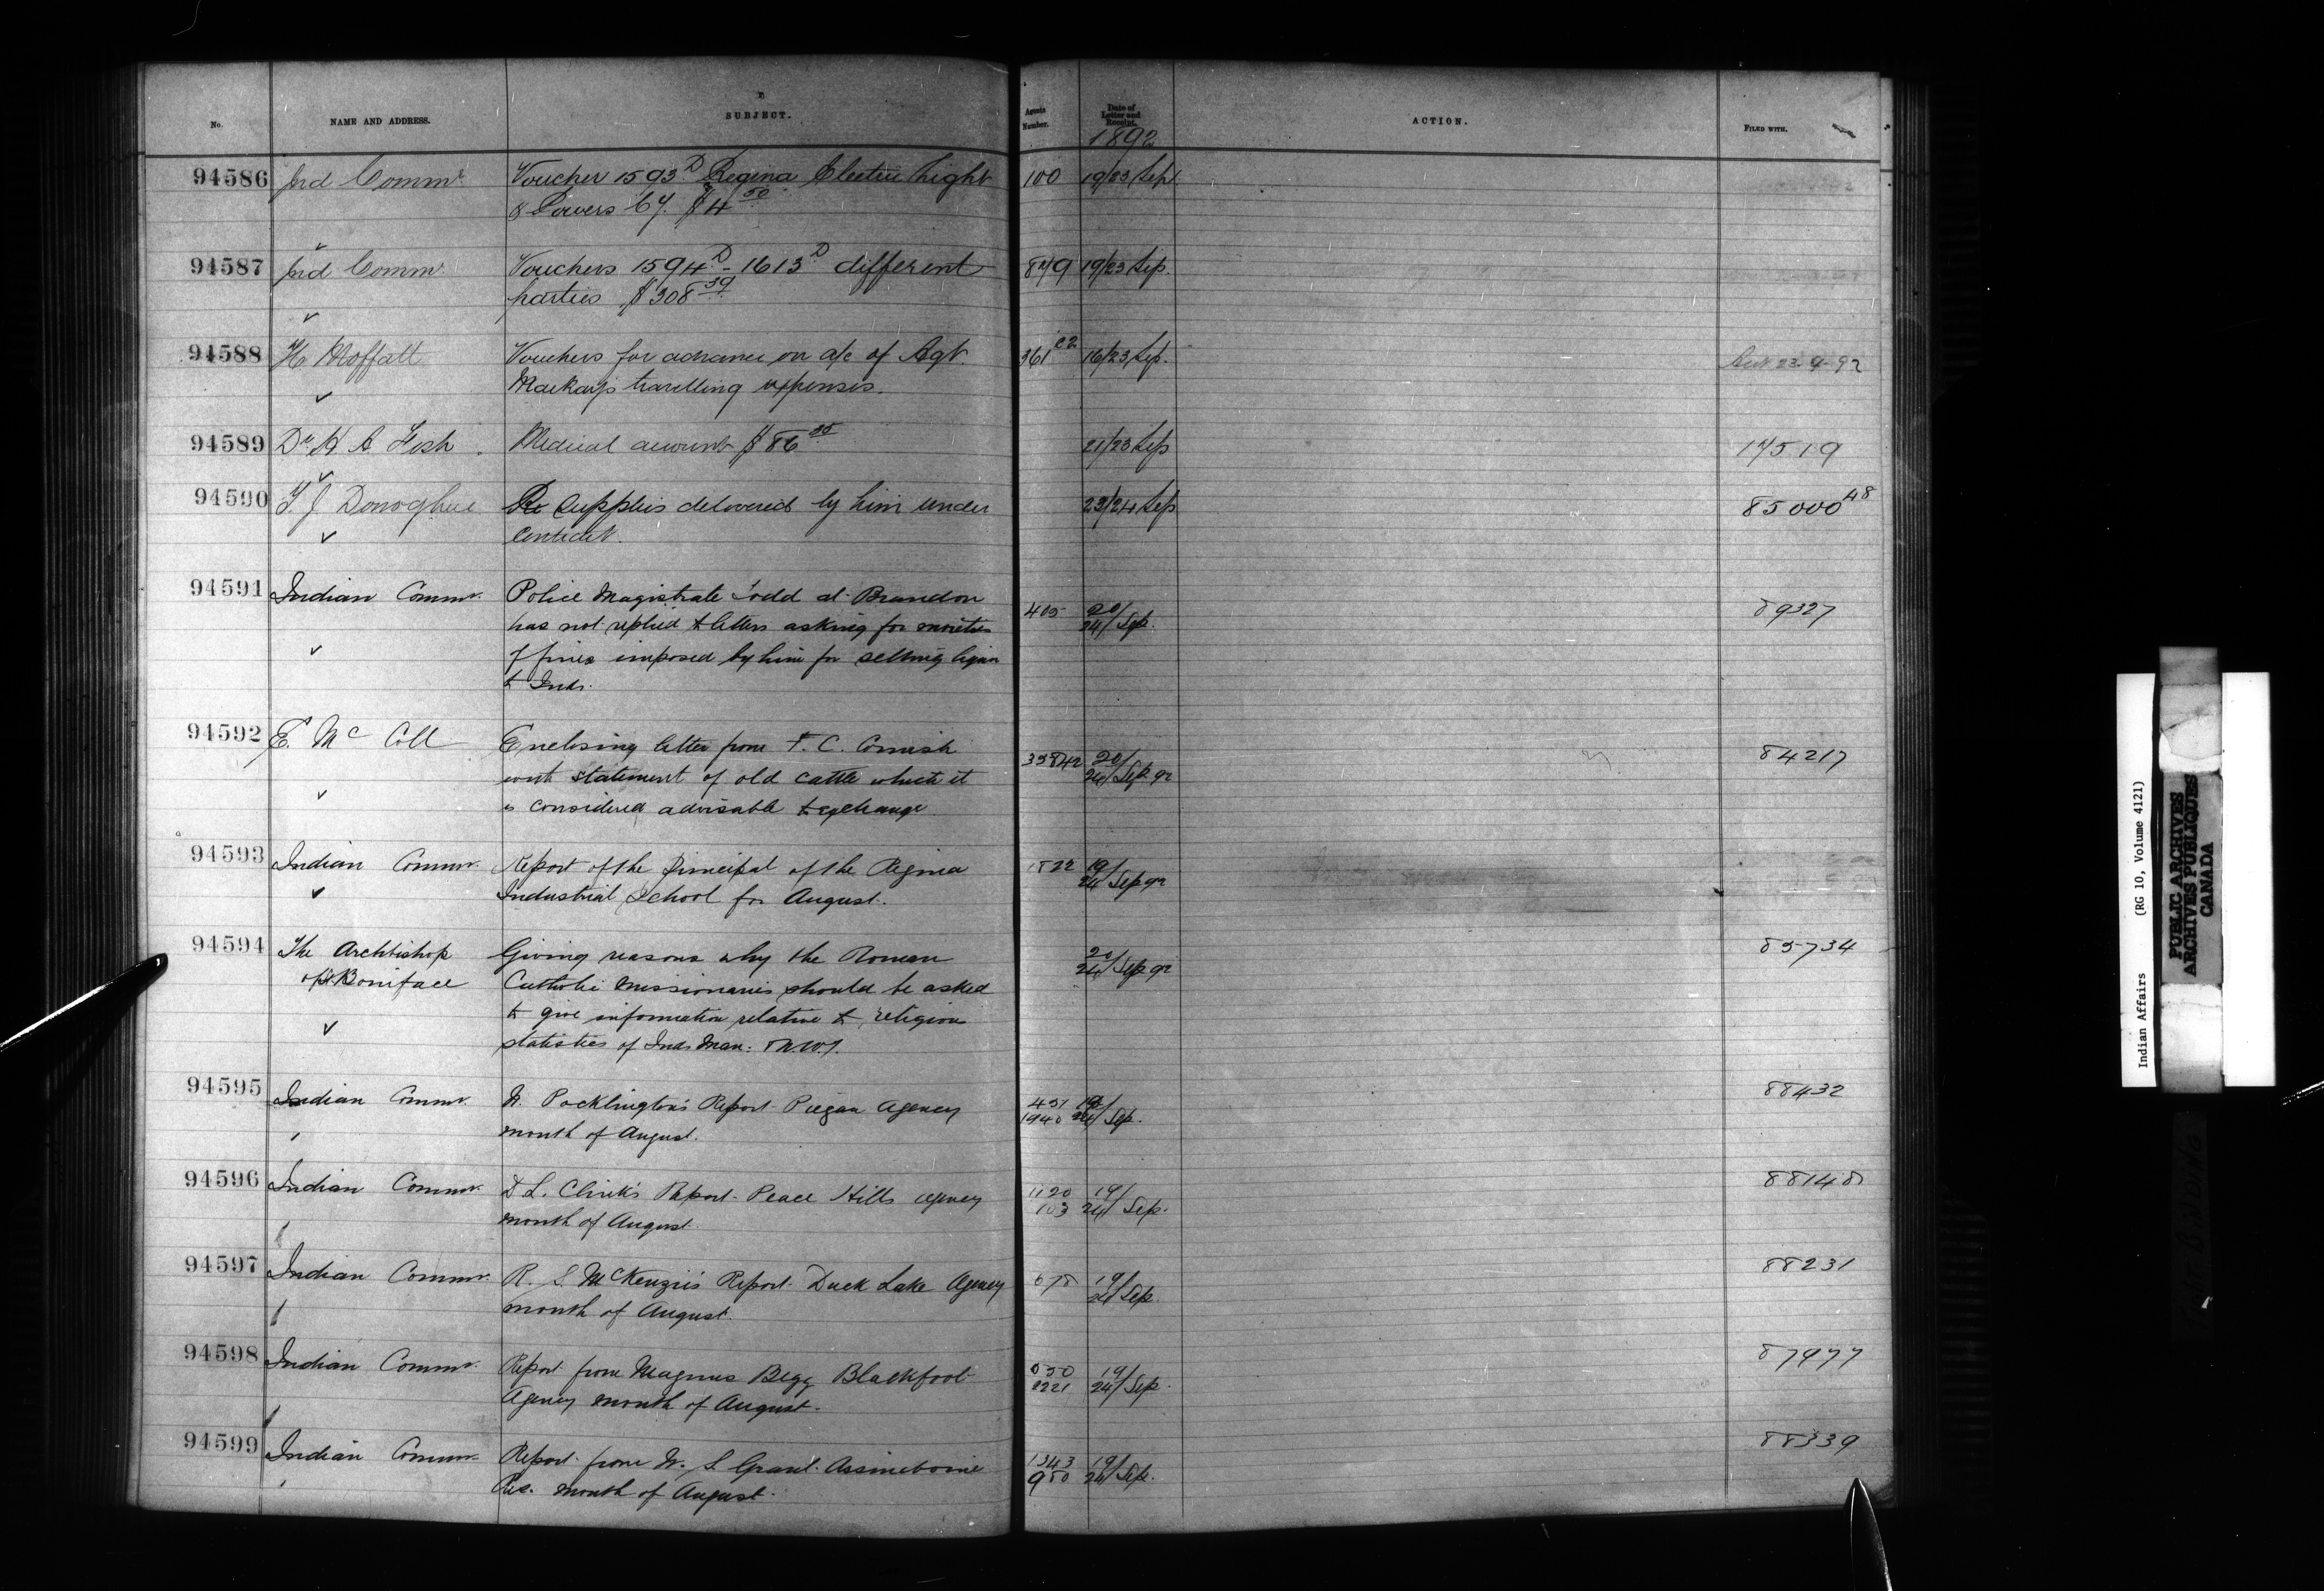 No. NAME AND ADDRESS. SUBJECT. Agents Number. Date of Letter and Receipt. ACTION. FILED WITH.
1892
94586 Ind Commr Voucher 1593 D Regina Electric Light 100 19/23 Sep
& Powers Cy. $4 50
94587 Ind Commr Vouchers 1594 D - 1613 D different 879 19/23 Sep.
parties $308 39
94588 H Moffatt Vouchers for advance on a/c of Agt. 361 C2 16/23 Sep. 23-9-92
Markay's travelling expenses.
94589 Dr H A Fish Medical account $86 21/23 Sep 17519
94590 T J Donoghue Re Supplies delivered by him under 23/24 Sep 85000 48
Contract.
94591 Indian Commr. Police Magistrate Todd at Brandon 405 20/24 Sep. 89327
has not replied to letters asking for moieties
of fines imposed by him for selling liquor
to Inds.
94592 E. Mc Coll Enclosing letter from F. C. Cornish 20/24 Sep 92 84217
with statement of old cattle which it
is considered advisable to exchange
94593 Indian Commr. Report of the Principal of the Regina 1822 19/24 Sep 92
Industrial School for August.
94594 The Archbishop Giving reasons why the Roman 20/24 Sep 92 85734
of St. Boniface Catholic Missionaries should be asked
to give information relative to religion
statistics of Inds Man: & N.W.T.
94595 Indian Commr. W. Pocklington's Report Piegan Agency 451 1940 19/24 Sep. 88432
month of August.
94596 Indian Commr. D L. Clink's Report Peace Hills agency 1120 103 19/24 Sep. 88148
month of August.
94597 Indian Commr. R. S McKenzie's Report Duck Lake Agency 678 19/24 Sep. 88231
month of August.
94598 Indian Commr. Report from Magnus Begg Blackfoot 2221 19/24 Sep. 87977
Agency month of August.
94599 Indian Commr. Report from W. S. Grant Assineboine 1343 980 19/24 Sep. 88339
Res. month of August.
Indian Affairs (RG 10, Volume 4121)
PUBLIC ARCHIVES
ARCHIVES PUBLIQUES
CANADA